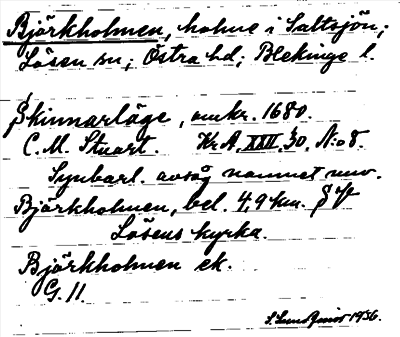 Björkholmen, holme i Saltsjön;
Lösen sn; Östra hd; Blekinge l.
Skinnarläge, omkr. 1680.
C. M. Stuart. Kr A, XXII, 30, N:o 8.
Synbarl. avsåg namnet nuv.
Björkholmen, bel. 4,9 km.
Lösens kyrka.
Björkholmen ek.
G. 11.
1936.